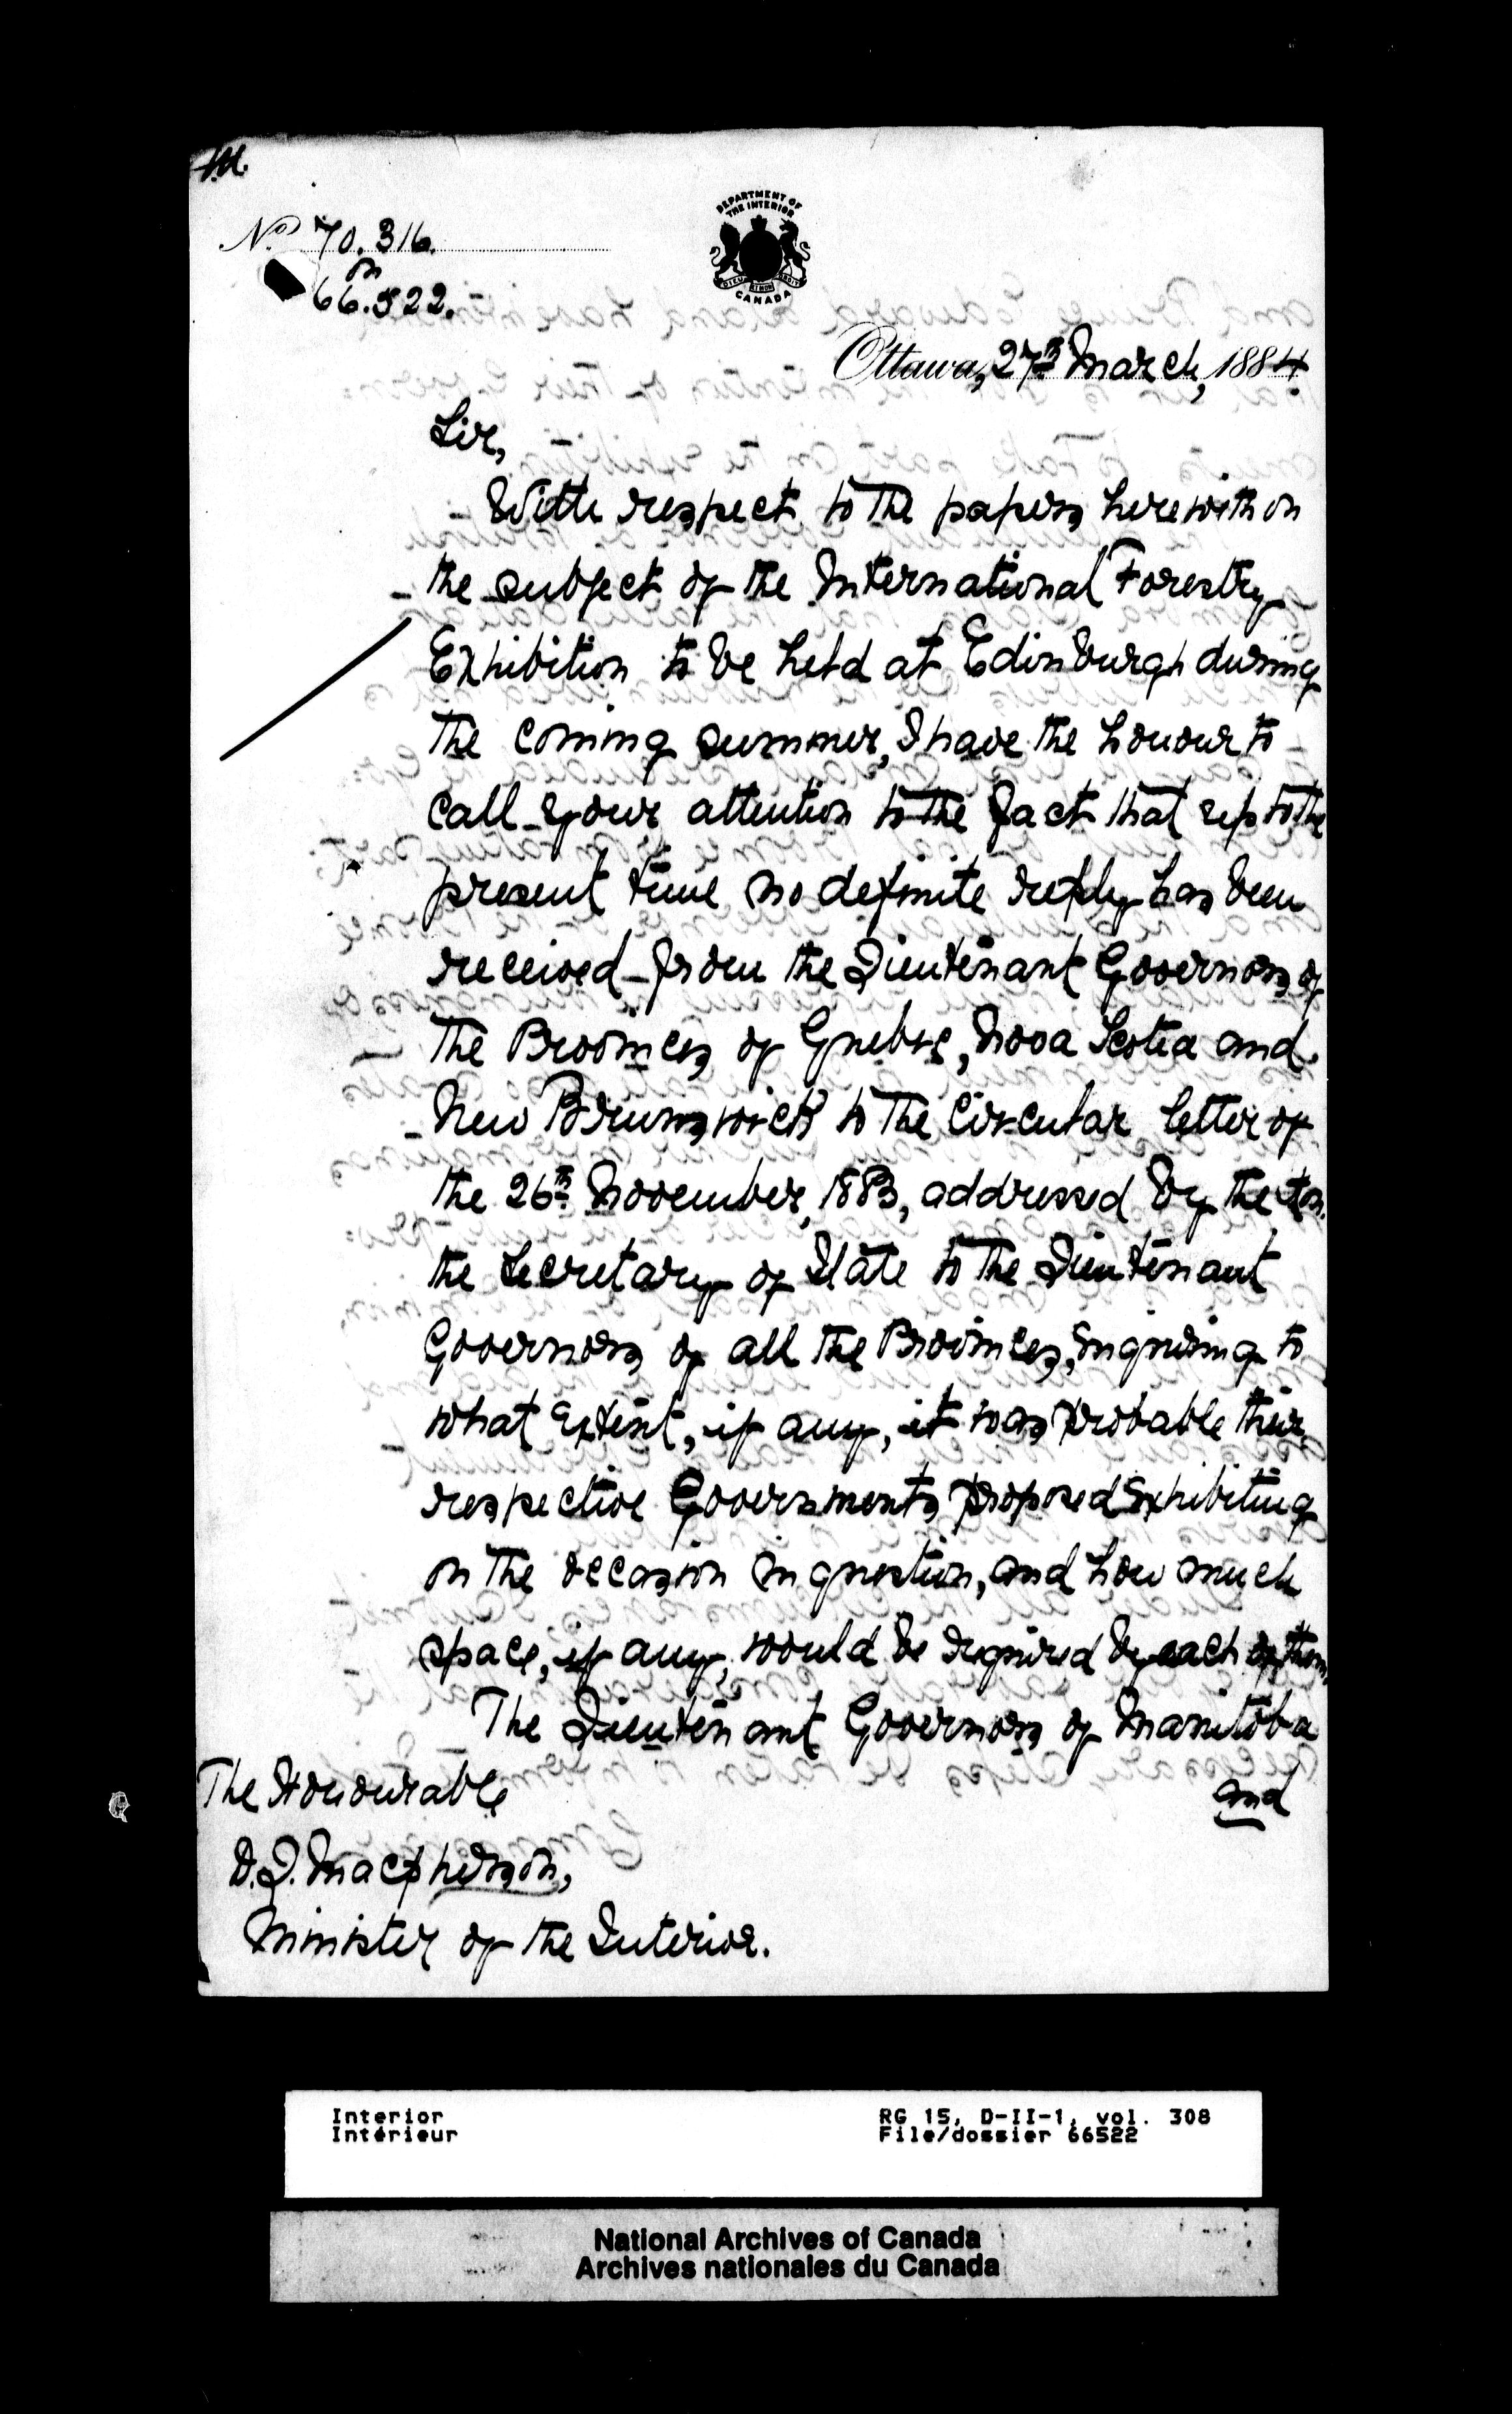 No. 70.316.
on
66.522.
DEPARTMENT OF
THE INTERIOR
CANADA
Ottawa, 27th March, 1884.
Sir,
With respect to the papers herewith on
the subject of the International Forestry
Exhibition to be held at Edinburgh during
the coming summer, I have the honour to
call your attention to the fact that up to the
present time no definite reply has been
received from the Lieutenant Governors of
the Provinces of Quebec, Nova Scotia and
New Brunswick to the Circular letter of
the 26th November, 1883, addressed by the Hon.
the Secretary of State to the Lieutenant
Governors of all the Provinces, inquiring to
what extent, if any, it was probable their
respective Governments proposed exhibiting
on the occasion in question, and how much
space, if any, would be required by each of them.
The Lieutenant Governors of Manitoba
and
The Honourable
D. L. Macpherson,
Minister of the Interior.
Interior
Intérieur
RG 15, D-II-1, vol. 308
File/dossier 66522
National Archives of Canada
Archives nationales du Canada